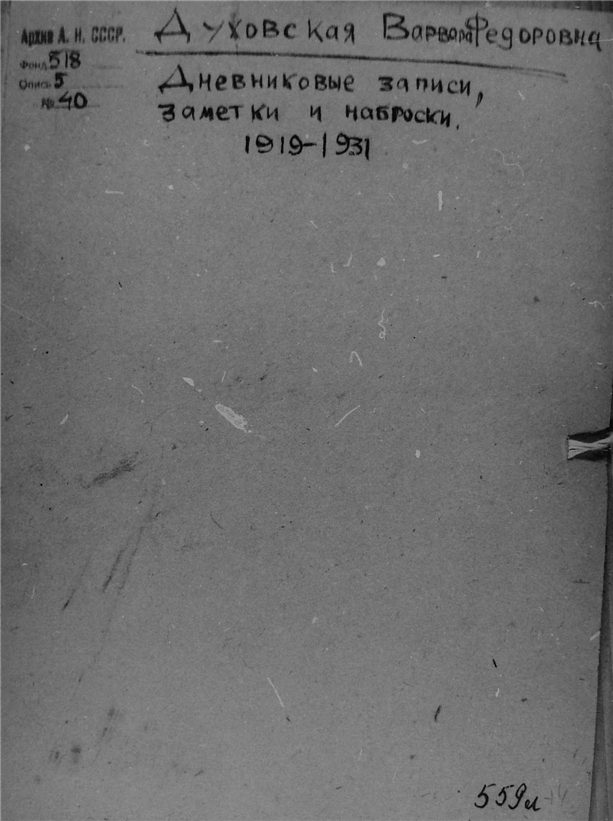 Архив А. Н. СССР.
Фонд 518
Опись 5
№ 40
Духовская Варвара Федоровна
Дневниковые записи,
заметки и наброски.
1919-1931
559л